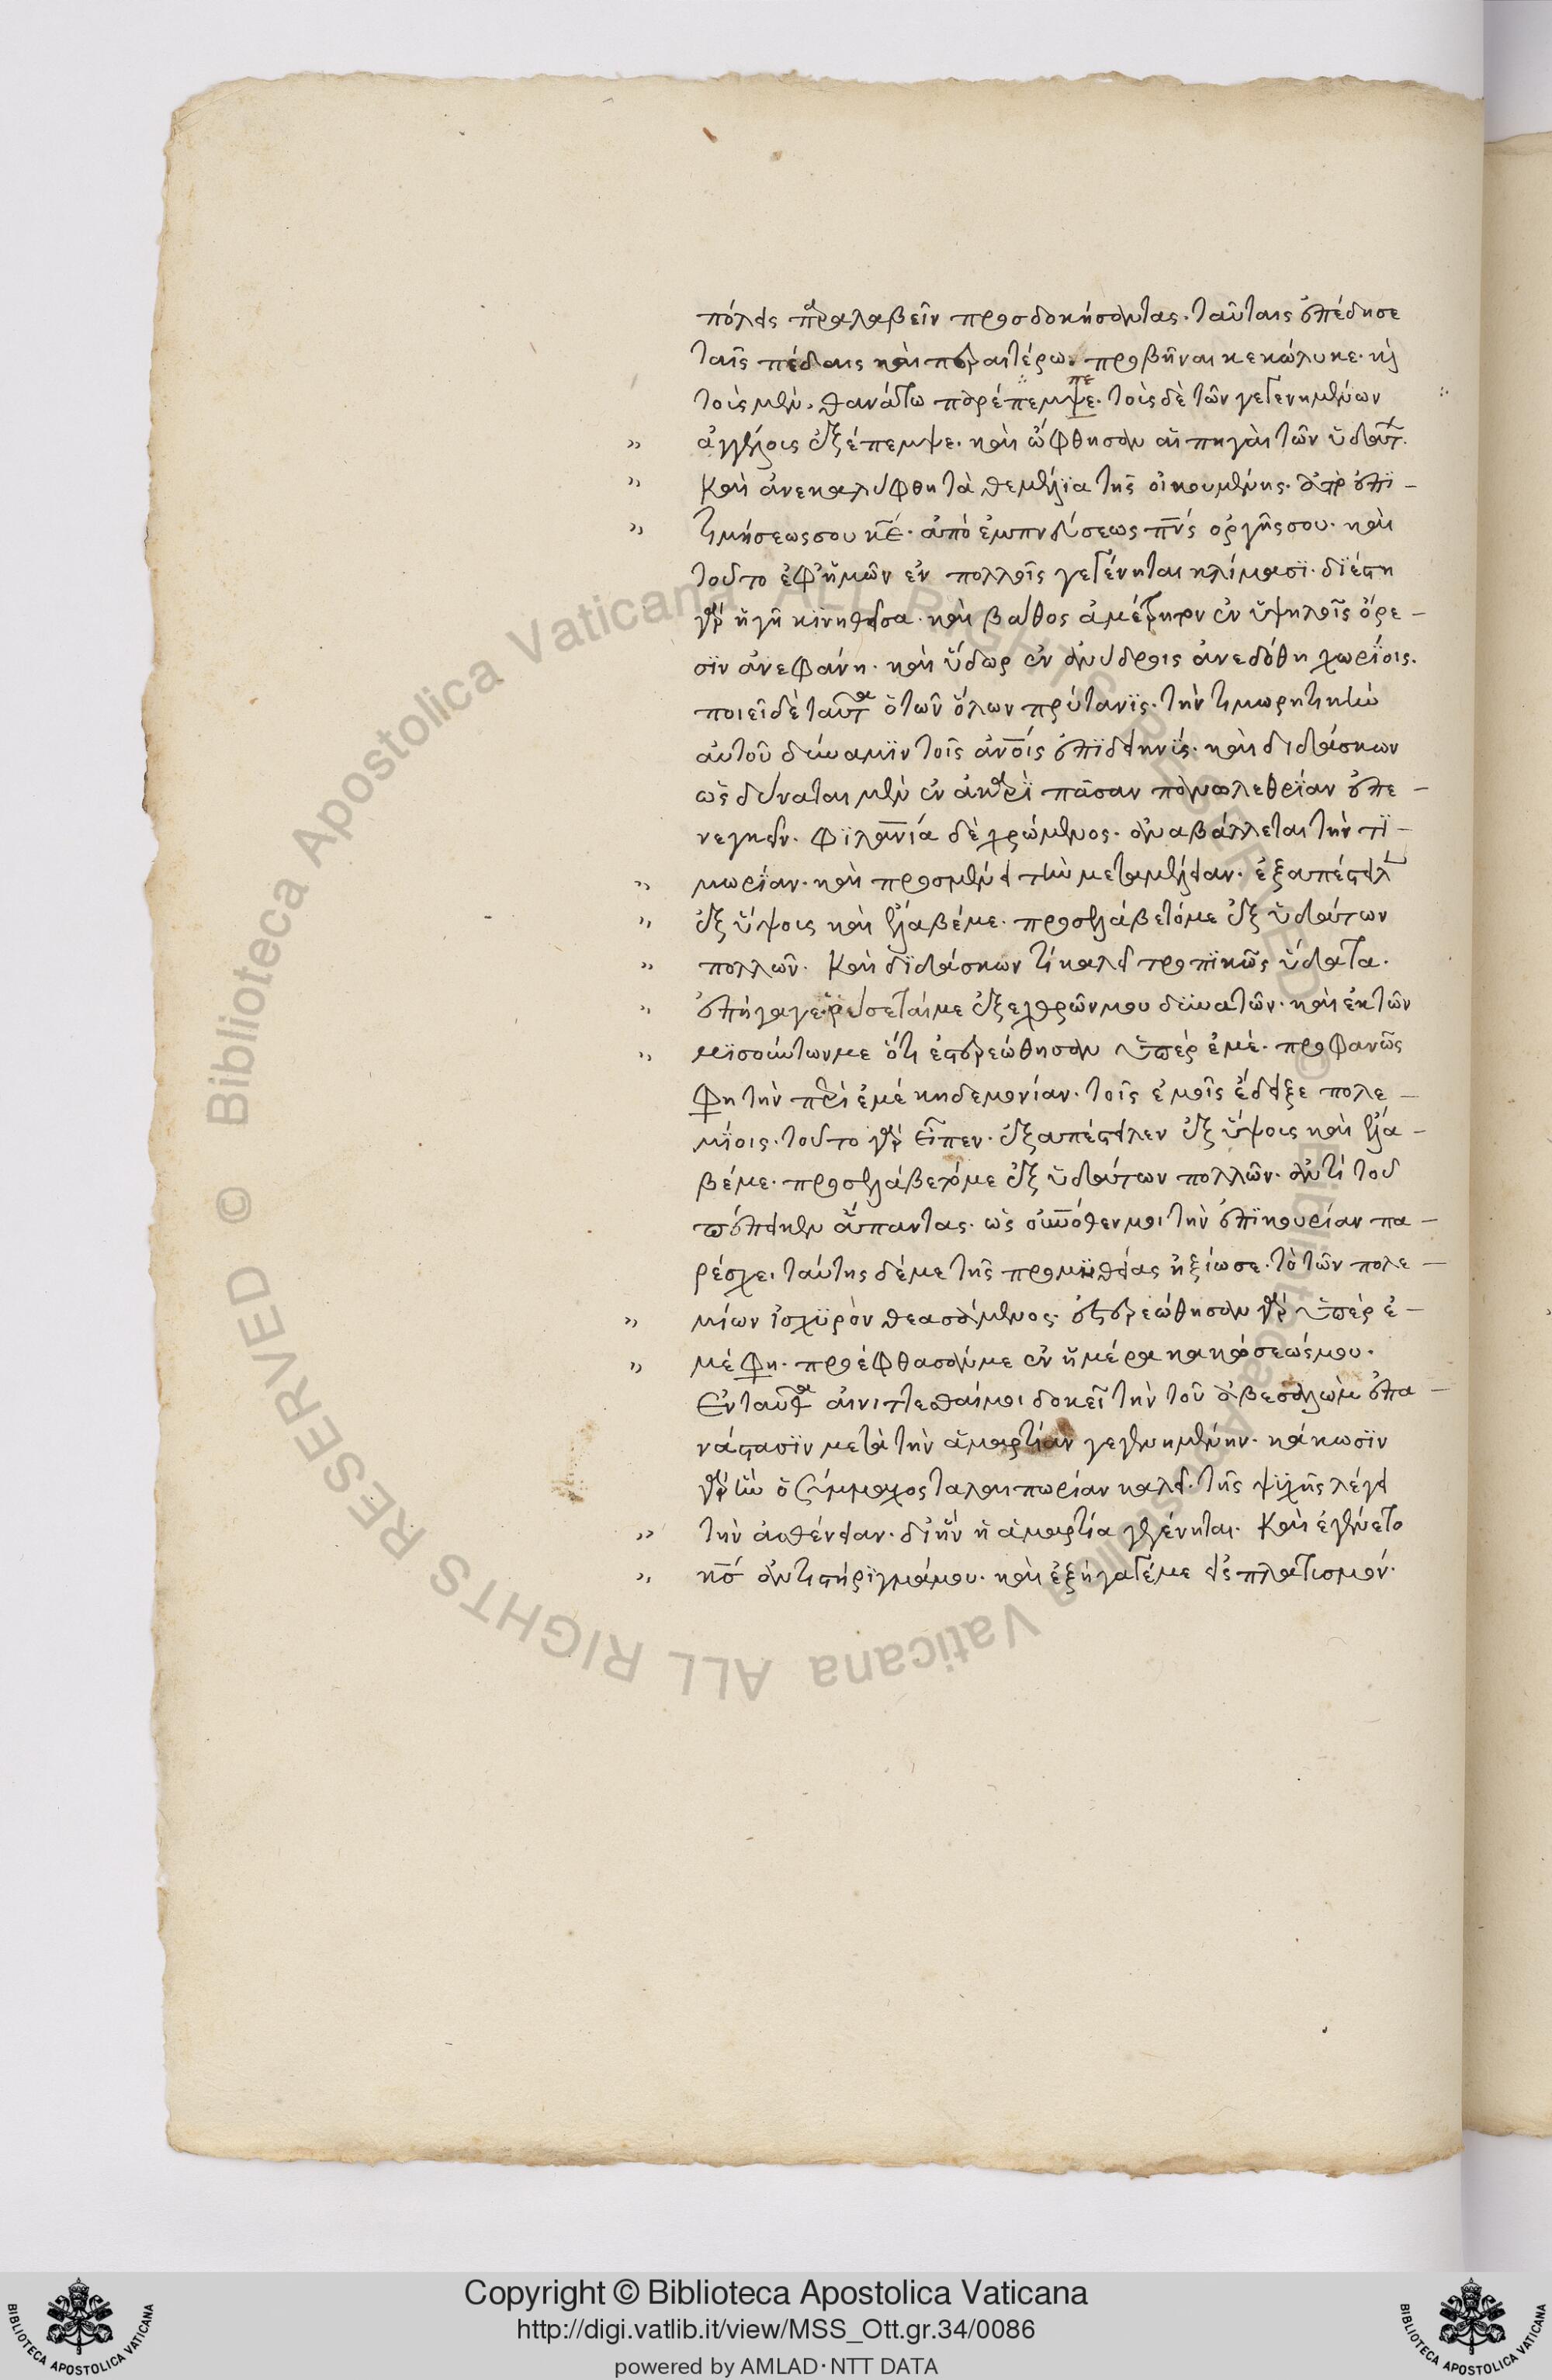 πόλεις παραλαβεῖν προσδοκήσαντας. ταύταις ἐπέδησε
ταῖς πέδαις καὶ περαιτέρω. προβῆναι κεκώλυκε. κὶ
τοὺς μὲν. θανάτω παρέπεμψε. τοὺς δὲ τῶν γεγενημένων
„ ἀγγέλους ἐξέπεμψε. καὶ ὤφθησαν αἱ πηγαὶ τῶν ὑδάτ.
„ Καὶ ἀνεκαλύφθη τὰ θεμέλϊα τῆς οἰκουμένης. ἀπὸ ἐπϊ-
„ τιμήσεώς σου κ̅ε̅. ἀπὸ ἐμπνεύσεως π̅ν̅ς̅ ὀργῆς σου. καὶ
τοῦτο ἐφ ἡμῶν ἐν πολλοῖς γεγένηται κλίμασϊ. διέστη
γὰρ ἡ γῆ κϊνηθεῖσα. καὶ βάθος ἀμέτρητον ἐν ὑψηλοῖς ὄρε-
σϊν ἀνεφάνη. καὶ ὕδωρ ἐν ἀνύδροις ἀνεδόθη χωρίοις.
ποιεῖ δὲ ταῦτα ὁ τῶν ὅλων πρύτανϊς. τὴν τιμωρητικὴν
αὐτοῦ δύναμϊν τοῖς ἀν̅ο̅ις ἐπϊδεικνύς. καὶ διδάσκων
ὡς δύναται μὲν ἐν ἀκαρεῖ πᾶσαν πανωλεθρϊαν ἐπε-
νεγκεῖν. φϊλαν̅ία δὲ χρώμενος. ἀναβάλλεται τὴν τϊ-
„ μωρίαν. καὶ προσμένει τὴν μεταμέλειαν. ἐξαπέστειλ
„ ἐξ ὕψους καὶ ἔλαβέ με. προσελάβετό με ἐξ ὑδάτων
„ πολλῶν. Καὶ διδάσκων τί καλεῖ τροπϊκῶς ὕδατα.
„ ἐπήγαγε. ῥύσεταί με ἐξ ἐχθρῶν μου δυνατῶν. καὶ ἐκ τῶν
„ μϊσούντων με ὅτι ἐστερεώθησαν ὑπὲρ ἐμέ. προφανῶς
φη τὴν περὶ ἐμέ κηδεμονίαν. τοῖς ἐμοῖς ἔδειξε πολε-
μϊοις. τοῦτο γὰρ εἶπεν. ἐξαπέστειλεν ἐξ ὕψους καὶ ἔλα-
βέ με. προσελάβετό με ἐξ ὑδάτων πολλῶν. ἀντὶ τοῦ
ἅπαντας. ὡς οὐ̅ν̅όθεν μοι τὴν ἐπϊκουρίαν πα-
ρέσχε. ταύτης δέ με τῆς προμηθείας ἠξίωσε. τὸ τῶν πολε-
„ μίων ἰσχϋρὸν θεασάμενος. ἐστερεώθησαν γὰρ ὑπὲρ ἐ-
„ μέ φη. προέφθασάν με ἐν ἡμέρα κακώσεώς μου.
Ἐνταῦθα αἰνίττεσθαί μοι δοκεῖ τὴν τοῦ ἀβεσαλὼμ ἐπα-
νάστασϊν μετὰ τὴν ἁμαρτίαν γεγενημένην. κάκωσϊν
γὰρ ἣν ὁ σύμμαχος ταλαιπωρίαν καλεῖ. τῆς ψϋχῆς λέγει
„ τὴν ἀσθένειαν. δι ἣν ἡ ἁμαρτία γεγένηται. Καὶ ἐγένετο
„ κ̅ς̅ ἀντιστήρϊγμά μου. καὶ ἐξήγαγέ με εἰς πλατϋσμόν.
Copyright © Biblioteca Apostolica Vaticana
http://digi.vatlib.it/view/MSS_Ott.gr.34/0086
powered by AMLAD·NTT DATA